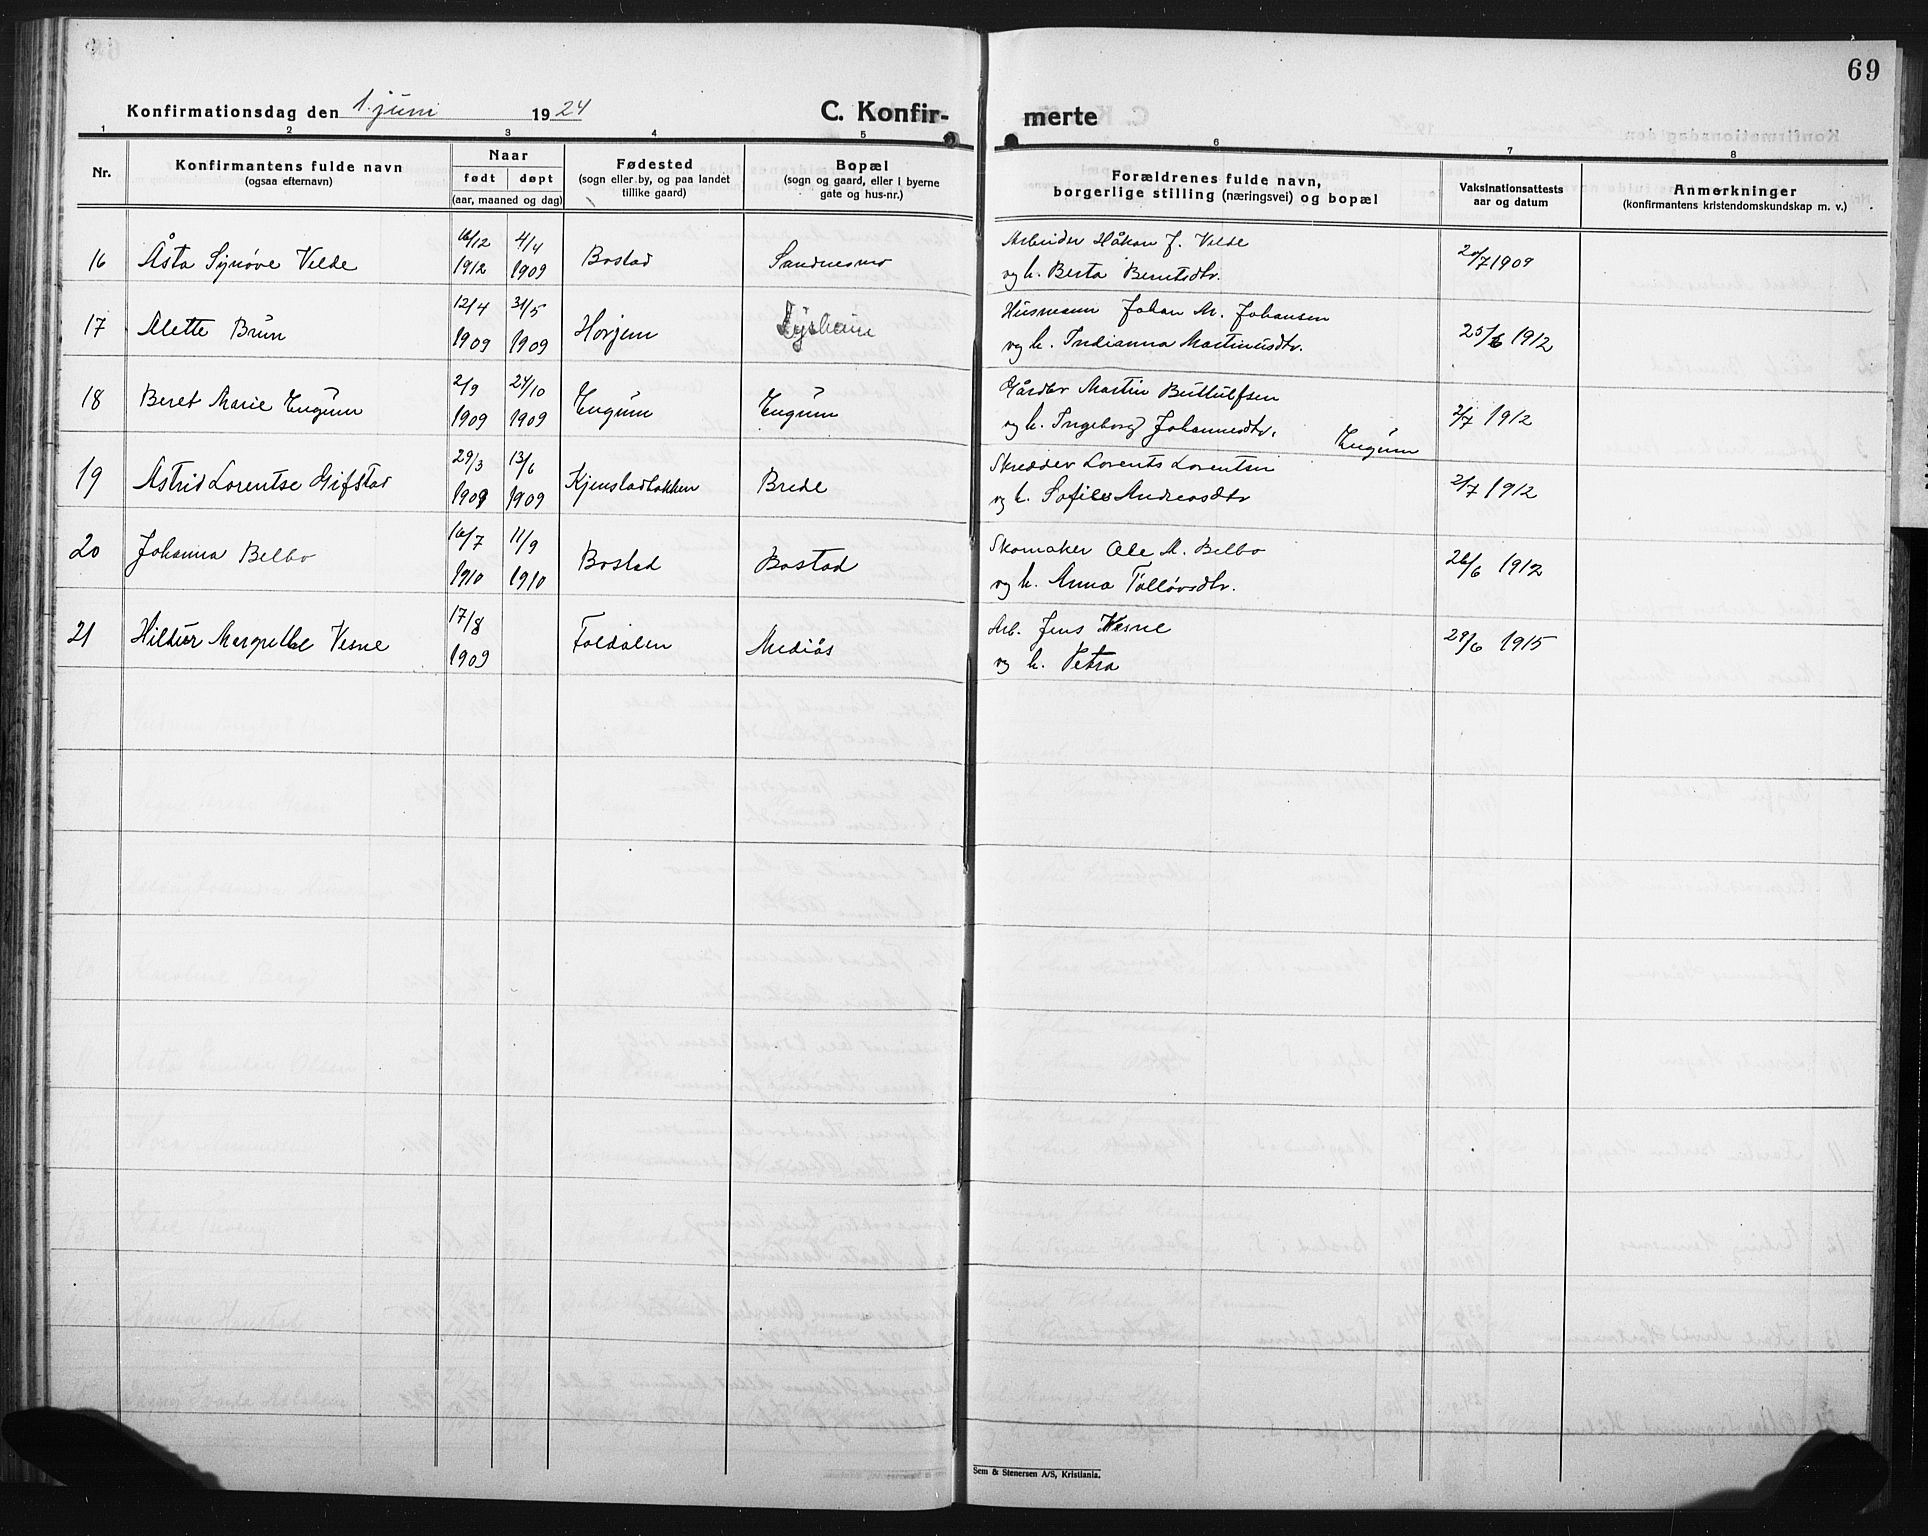 69
Konfirmationsdag den 1. juni 1924
C. Konfirmerte
1 2 3 4 5 6 7 8
Nr.
Konfirmantens fulde navn
(ogsaa efternavn)
Naar
født døpt
(aar, maaned og dag)
Fødested
(sogn eller by, og paa landet
tillike gaard)
Bopæl
(sogn og gaard, eller i byerne
gate og hus-nr.)
Forældrenes fulde navn,
borgerlige stilling (næringsvei) og bopæl
Vaksinationsattests
aar og datum
Anmerkninger
(konfirmantens kristendomskundskap m. v.)
16/12 4/4 Arbeider Håkon J. Velde
16 Åsta Synøve Velde 1912 1909 Bostad Sandnesmo og h. Berta Berntsdtr. 20/7 1909
12/4 31/5 Husmann Johan M. Johansen
17 Alette Brun 1909 1909 Horjem Lysheim og h. Indianna Martinusdtr. 25/6 1912
2/9 24/10 Gårdbr Martin Buttulfsen
18 Beret Marie Engum 1909 1909 Engum Engum og h. Ingeborg Johannesdtr. Engum 2/7 1912
29/3 13/6 Skredder Lorents Lorentsen
19 Astrid Lorentse Gifstad 1909 1909 Kjenstadbakken Brede og h. Sofie Andreasdtr 2/7 1912
16/7 11/9 Skomaker Ole M. Belbo
20 Johanna Belbo 1910 1910 Bostad Bostad og h. Anna Tølløvsdtr. 26/6 1912
17/8 Arb. Jens Vesne
21 Hildur Margrethe Vesne 1909 Foldalen Mediås og h. Petra 29/6 1915
Sem & Stenersen A/S, Kristiania.